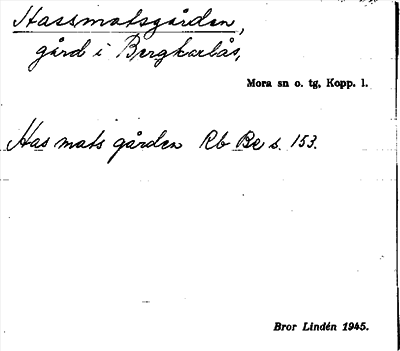 Hassmatsgården,
gård i Bergkarlås,
Mora sn o. tg, Kopp. l.
Has mats gården Rb Be s. 153.
Bror Lindén 1945.